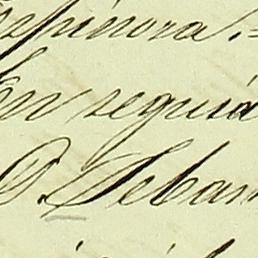 Espinosa.=
En seguid
D. Seban